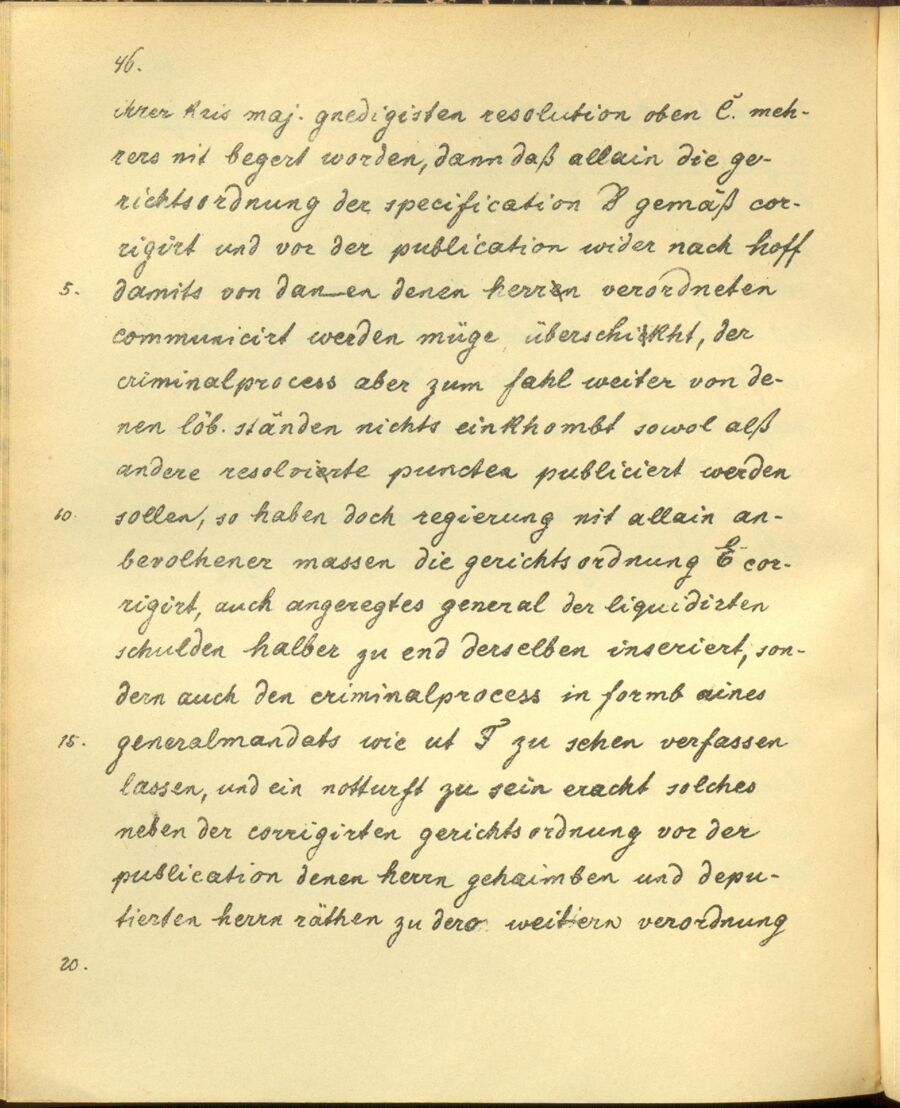 46.
ihrer Kris maj. gnedigisten resolution oben C. meh-
rers nit begert worden, dann daß allain die ge-
richtsordnung der specification D gemäß cor-
rigirt und vor der publication wider nach hoff
5. damits von dannen denen herren verordneten
communicirt werden müge überschikht, der
criminalprocess aber zum fahl weiter von de-
nen löb. ständen nichts einkhombt sowol alß
andere resolvirte puncten publiciert werden
10. sollen, so haben doch regierung nit allain an-
bevolhener massen die gerichtsordnung E cor-
rigirt, auch angeregtes general der liquidirten
schulden halber zu end derselben inseriert, son-
dern auch den criminalprocess in formb aines
15. generalmandats wie ut F zu sehen verfassen
lassen, und ein notturft zu sein eracht solches
neben der corrigirten gerichtsordnung vor der
publication denen herrn gehaimben und depu-
tierten herrn räthen zu dero weitern verordnung
20.